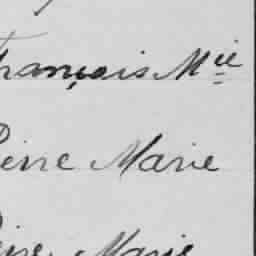 François Mie
Pierre Marie
Pierre Marie